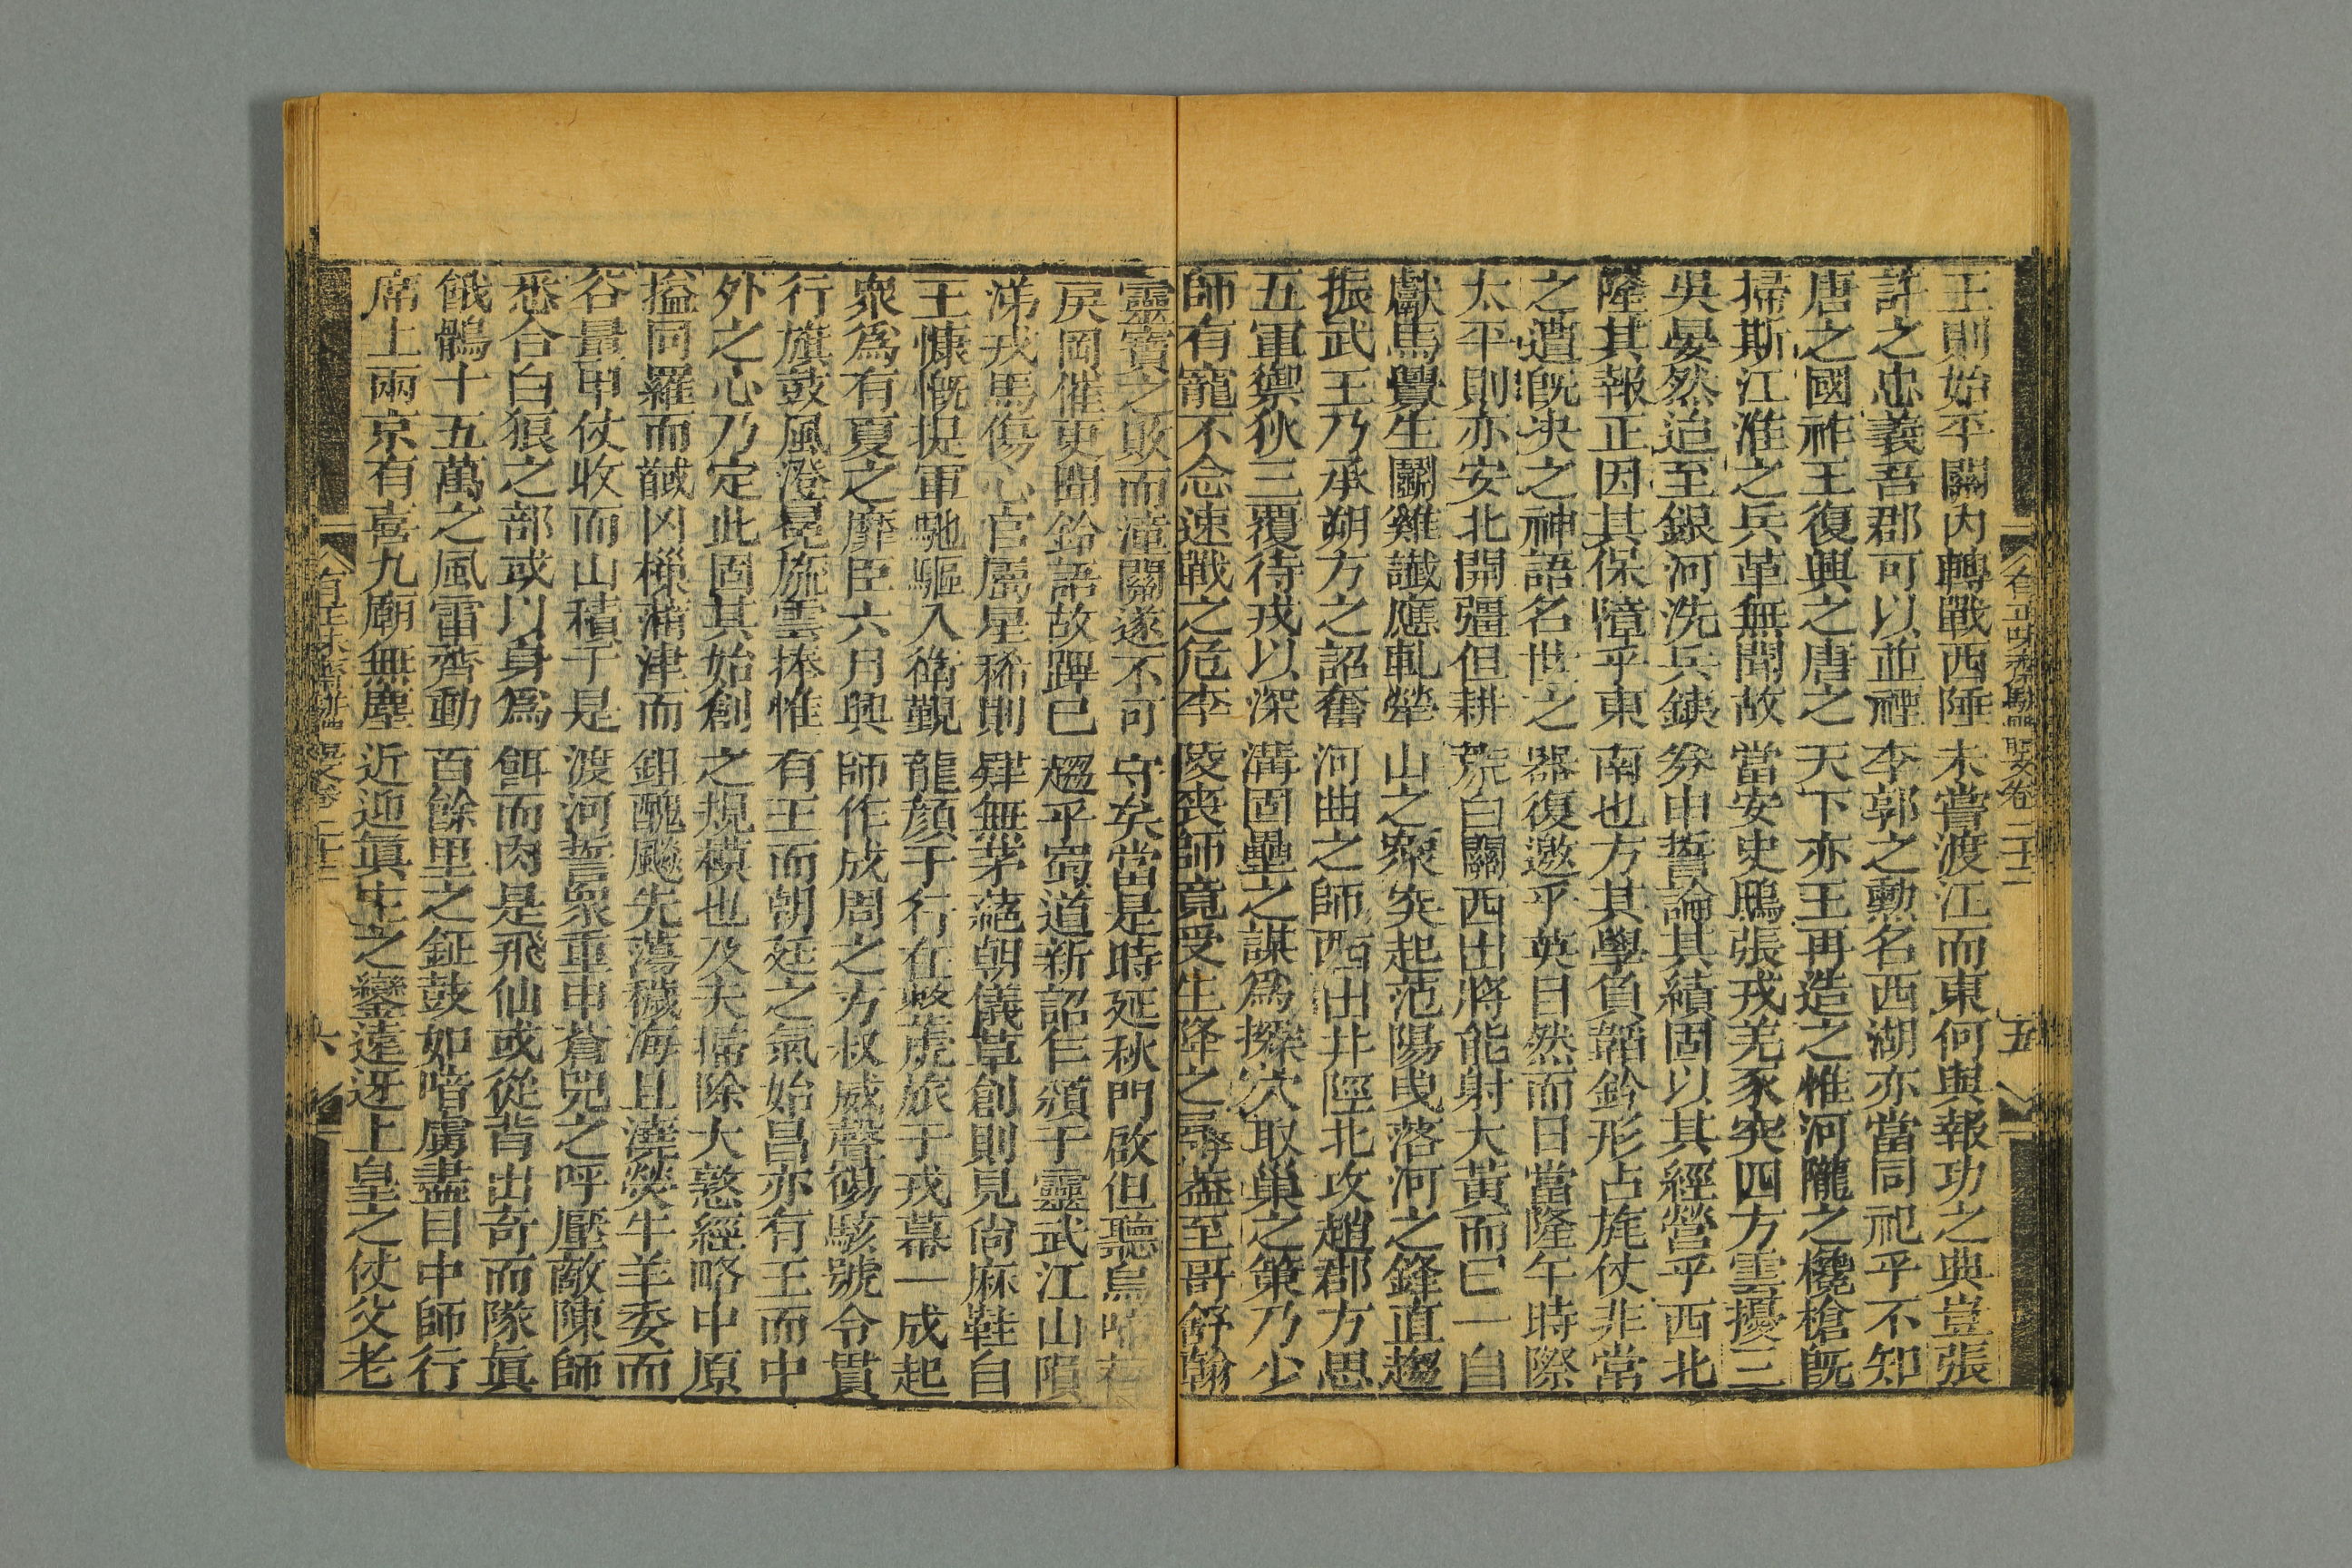 王則始平關內轉戰西陲未嘗渡江而東何與報功之典豈張
許之忠義吾郡可以並禋李郭之勳名西湖亦當同祀乎不知
唐之國祚王復興之唐之天下亦王再造之惟河隴之欃槍既
掃斯江淮之兵革無聞故當安史鴟張戎羌豕突四方雲擾三
吳晏然迨至銀河洗兵鐵券申誓論其績固以其經營乎西北
隆其報正因其保障乎東南也方其學負韜鈐形占旄仗非常
之遭既決之神語名世之器復邀乎英目然而日當隆午時際
太平則亦安北開疆但耕荒白關西出將能射大黃而已一自
獻馬釁生鬭雞讖應軋犖山之衆突起范陽曳落河之鋒直趨
振武王乃承朔方之詔奮河曲之師西出井陘北攻趙郡方思
五軍禦狄三覆待戎以深溝固壘之謀爲探穴取巢之策乃少
師有寵不念速戰之危李陵喪師竟受生降之辱蓋至哥舒翰
靈寶之敗而潼關遂不可守矣當是時延秋門啟但聽烏啼
戾岡催更聞鈴語故蹕已趨乎蜀道新詔乍頒于靈武江山隕
涕戎馬傷心官屬星稀則肆無茅蕝朝儀草創則見尙麻鞋自
王慷慨捉軍馳驅入衛覲龍顏于行在整虎旅于戎幕一成起
衆爲有夏之靡臣六月興師作成周之方叔威聲弱駭號令貫
行旗鼓風澄晃旒雲捧惟有王而朝廷之氣始昌亦有王而中
外之心乃定此固其始創之規模也及夫掃除大憝經略中原
搤同羅而馘凶樔蒲津而鉏醜颷先蕩穢海且澆熒牛羊委而
谷量甲仗收而山積于是渡河誓衆重申蒼兕之呼壓敵陳師
悉合白狼之部或以身爲餌而肉是飛仙或從背出奇而隊眞
餓鶻十五萬之風雷齊動百餘里之鉦鼓如喑虜盡目中師行
席上兩京有喜九廟無塵近迎眞主之鑾遠迓上皇之仗父老